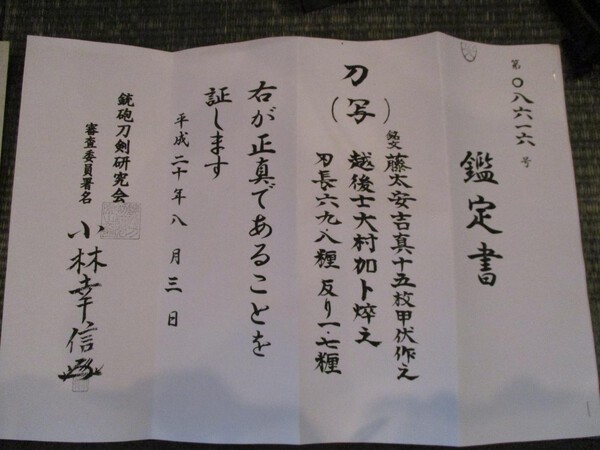 第〇八六一六号
鑑定書
刀
(写)
銘文 藤太安吉真十五枚甲伏作之
越後士大村加ト焠之
刃長六九八糎 反り一・七糎
右が正真であることを
証します
平成二十年八月三日
銃砲刀剣研究会
審査委員署名
小林幸信